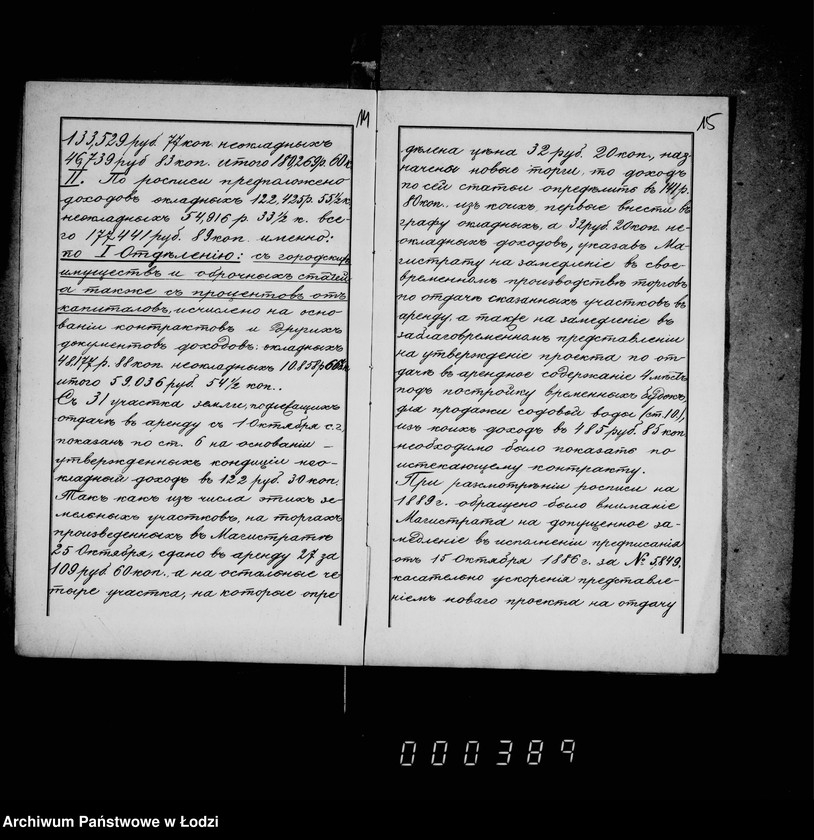 14
133,529 руб 77 коп неокладныхъ
46,739 руб 83 коп. итого 180,269 р. 60 к
II. По росписи предположено
доходовъ окладныхъ 122,425 р. 55½ к.
неокладныхъ 54,916 р. 33½ к. все-
го 177441 руб. 89 коп. именно:
по I Отдѣленію: съ городскихъ
имуществъ и оброчныхъ статей
а также съ процентовъ отъ
капиталовъ, исчислено на осно-
ваніи контрактовъ и другихъ
документовъ доходовъ: окладныхъ
48.177 р. 88 коп неокладныхъ 10.858 р
итого 59.036 руб. 54½ коп..
Съ 31 участка земли, подлежащихъ
отдачѣ въ аренду съ 1 Октября с.г.
показанъ по ст. 6 на основаніи –
утвержденныхъ кондицій нео-
кладный доходъ въ 122 руб. 30 коп.
Такъ какъ изъ числа этихъ зе-
мельныхъ участковъ, на торгахъ
произведенныхъ въ Магистратѣ
25 Октября, сдано въ аренду 27 за
109 руб 60 коп. а на остальные че
тыре участка, на которые опре
15
дѣлена цѣна 32 руб. 20 коп., наз-
начены новые торги, то доходъ
по сей статьи опредѣлить въ 141 р.
80 коп. изъ коихъ первые внести въ
графу окладныхъ, а 32 руб. 20 коп не-
окладныхъ доходовъ, указавъ Ма-
гистрату на замедленіе въ свое-
временномъ производствѣ торговъ
по отдачѣ сказанныхъ участковъ въ
аренду, а также на замедленіе въ
заблаговременномъ представленіи
на утвержденіе проекта по от-
дачѣ въ арендное содержаніе 4 мѣстъ
подъ постройку временныхъ будокъ,
для продажи содовой воды (ст. 10),
изъ коихъ доходъ въ 485 руб. 85 коп
необходимо было показать по
истекающему контракту.
При разсмотрѣніи росписи на
1889 г. обращено было вниманіе
Магистрата на допущенное за-
медленіе въ исполненіи предписанія
отъ 15 Октября 1886 г. за № 5,849.
касательно ускоренія представле-
ніемъ новаго проекта на отдачу
000389
Archiwum Państwowe w Łodzi